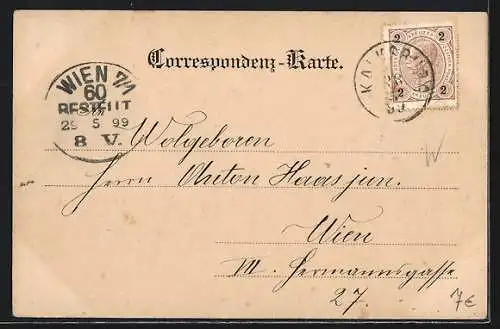 Correspondenz-Karte.
2 2
2 2
WIEN 7/1
60
BESTELLT
29 5 99
8 V.
Wolgeboren
Herrn Anton Haas jun.
Wien
VII. Hermanngasse
27.
7€